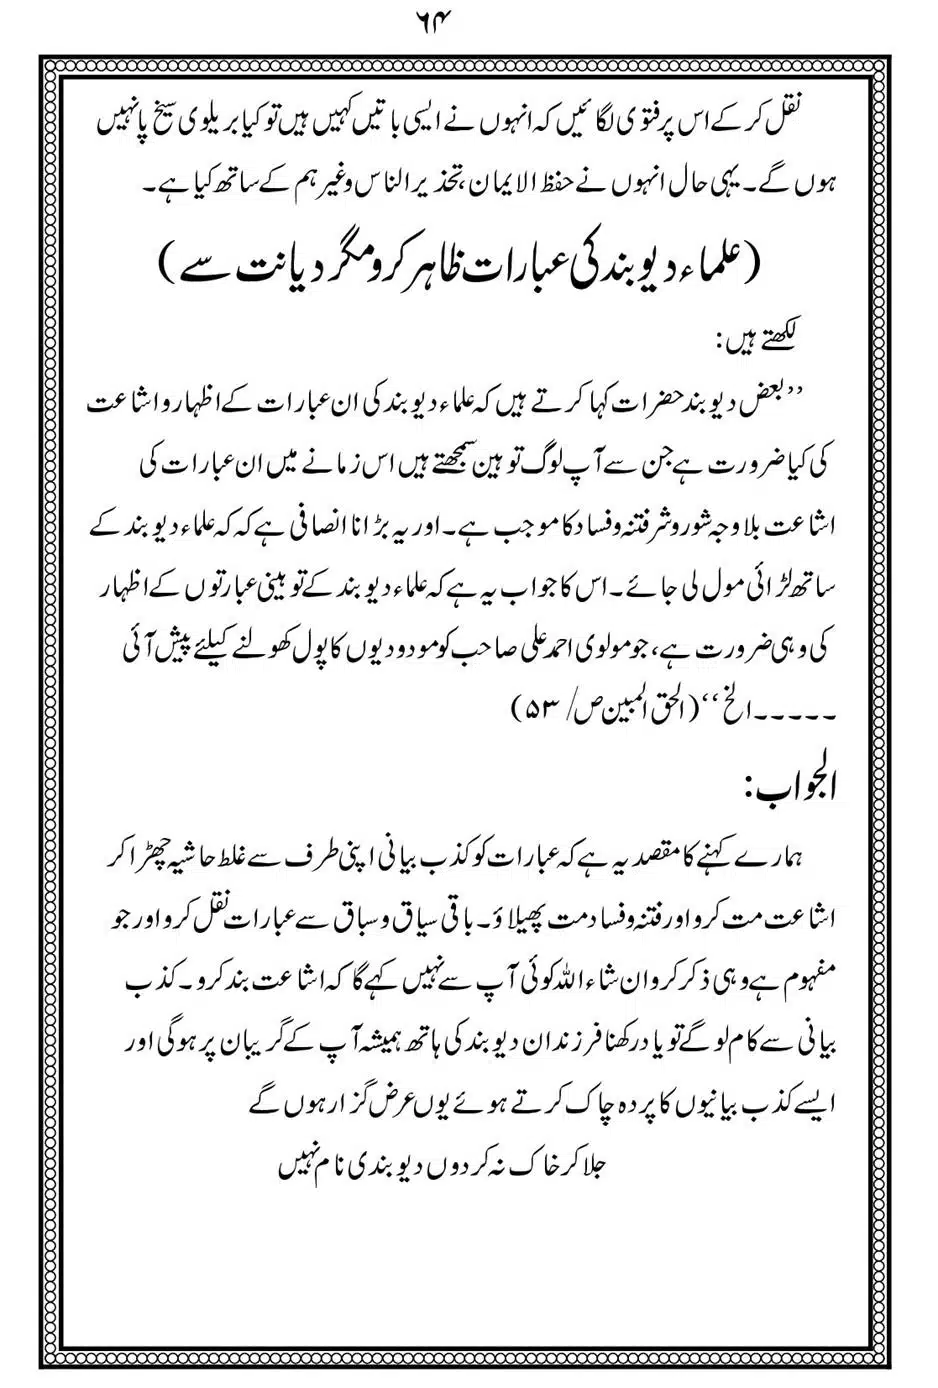 ۶۴
نقل کر کے اس پر فتوی لگائیں کہ انہوں نے ایسی باتیں کہیں ہیں تو کیا بریلوی سیخ پا نہیں
ہوں گے۔ یہی حال انہوں نے حفظ الایمان، تحذیر الناس وغیرہم کے ساتھ کیا ہے۔
(علماء دیوبند کی عبارات ظاہر کرو مگر دیانت سے)
لکھتے ہیں:
’’بعض دیوبند حضرات کہا کرتے ہیں کہ علماء دیوبند کی ان عبارات کے اظہار و اشاعت
کی کیا ضرورت ہے جن سے آپ لوگ توہین سمجھتے ہیں اس زمانے میں ان عبارات کی
اشاعت بلا وجہ شور و شر فتنہ و فساد کا موجب ہے۔ اور یہ بڑا نا انصافی ہے کہ کہ علماء دیوبند کے
ساتھ لڑائی مول لی جائے۔ اس کا جواب یہ ہے کہ علماء دیوبند کے توہینی عبارتوں کے اظہار
کی وہی ضرورت ہے، جو مولوی احمد علی صاحب کو مودودیوں کا پول کھولنے کیلئے پیش آئی
۔۔۔۔۔الخ‘‘ (الحق المبین ص/۵۳)
الجواب:
ہمارے کہنے کا مقصد یہ ہے کہ عبارات کو کذب بیانی اپنی طرف سے غلط حاشیہ چھڑا کر
اشاعت مت کرو اور فتنہ و فساد مت پھیلاؤ۔ باقی سیاق و سباق سے عبارات نقل کرو اور جو
مفہوم ہے وہی ذکر کرو ان شاء اللہ کوئی آپ سے نہیں کہے گا کہ اشاعت بند کرو۔ کذب
بیانی سے کام لو گے تو یاد رکھنا فرزندان دیوبند کی ہاتھ ہمیشہ آپ کے گریبان پر ہوگی اور
ایسے کذب بیانیوں کا پردہ چاک کرتے ہوئے یوں عرض گزار ہوں گے
جلا کر خاک نہ کردوں دیوبندی نام نہیں